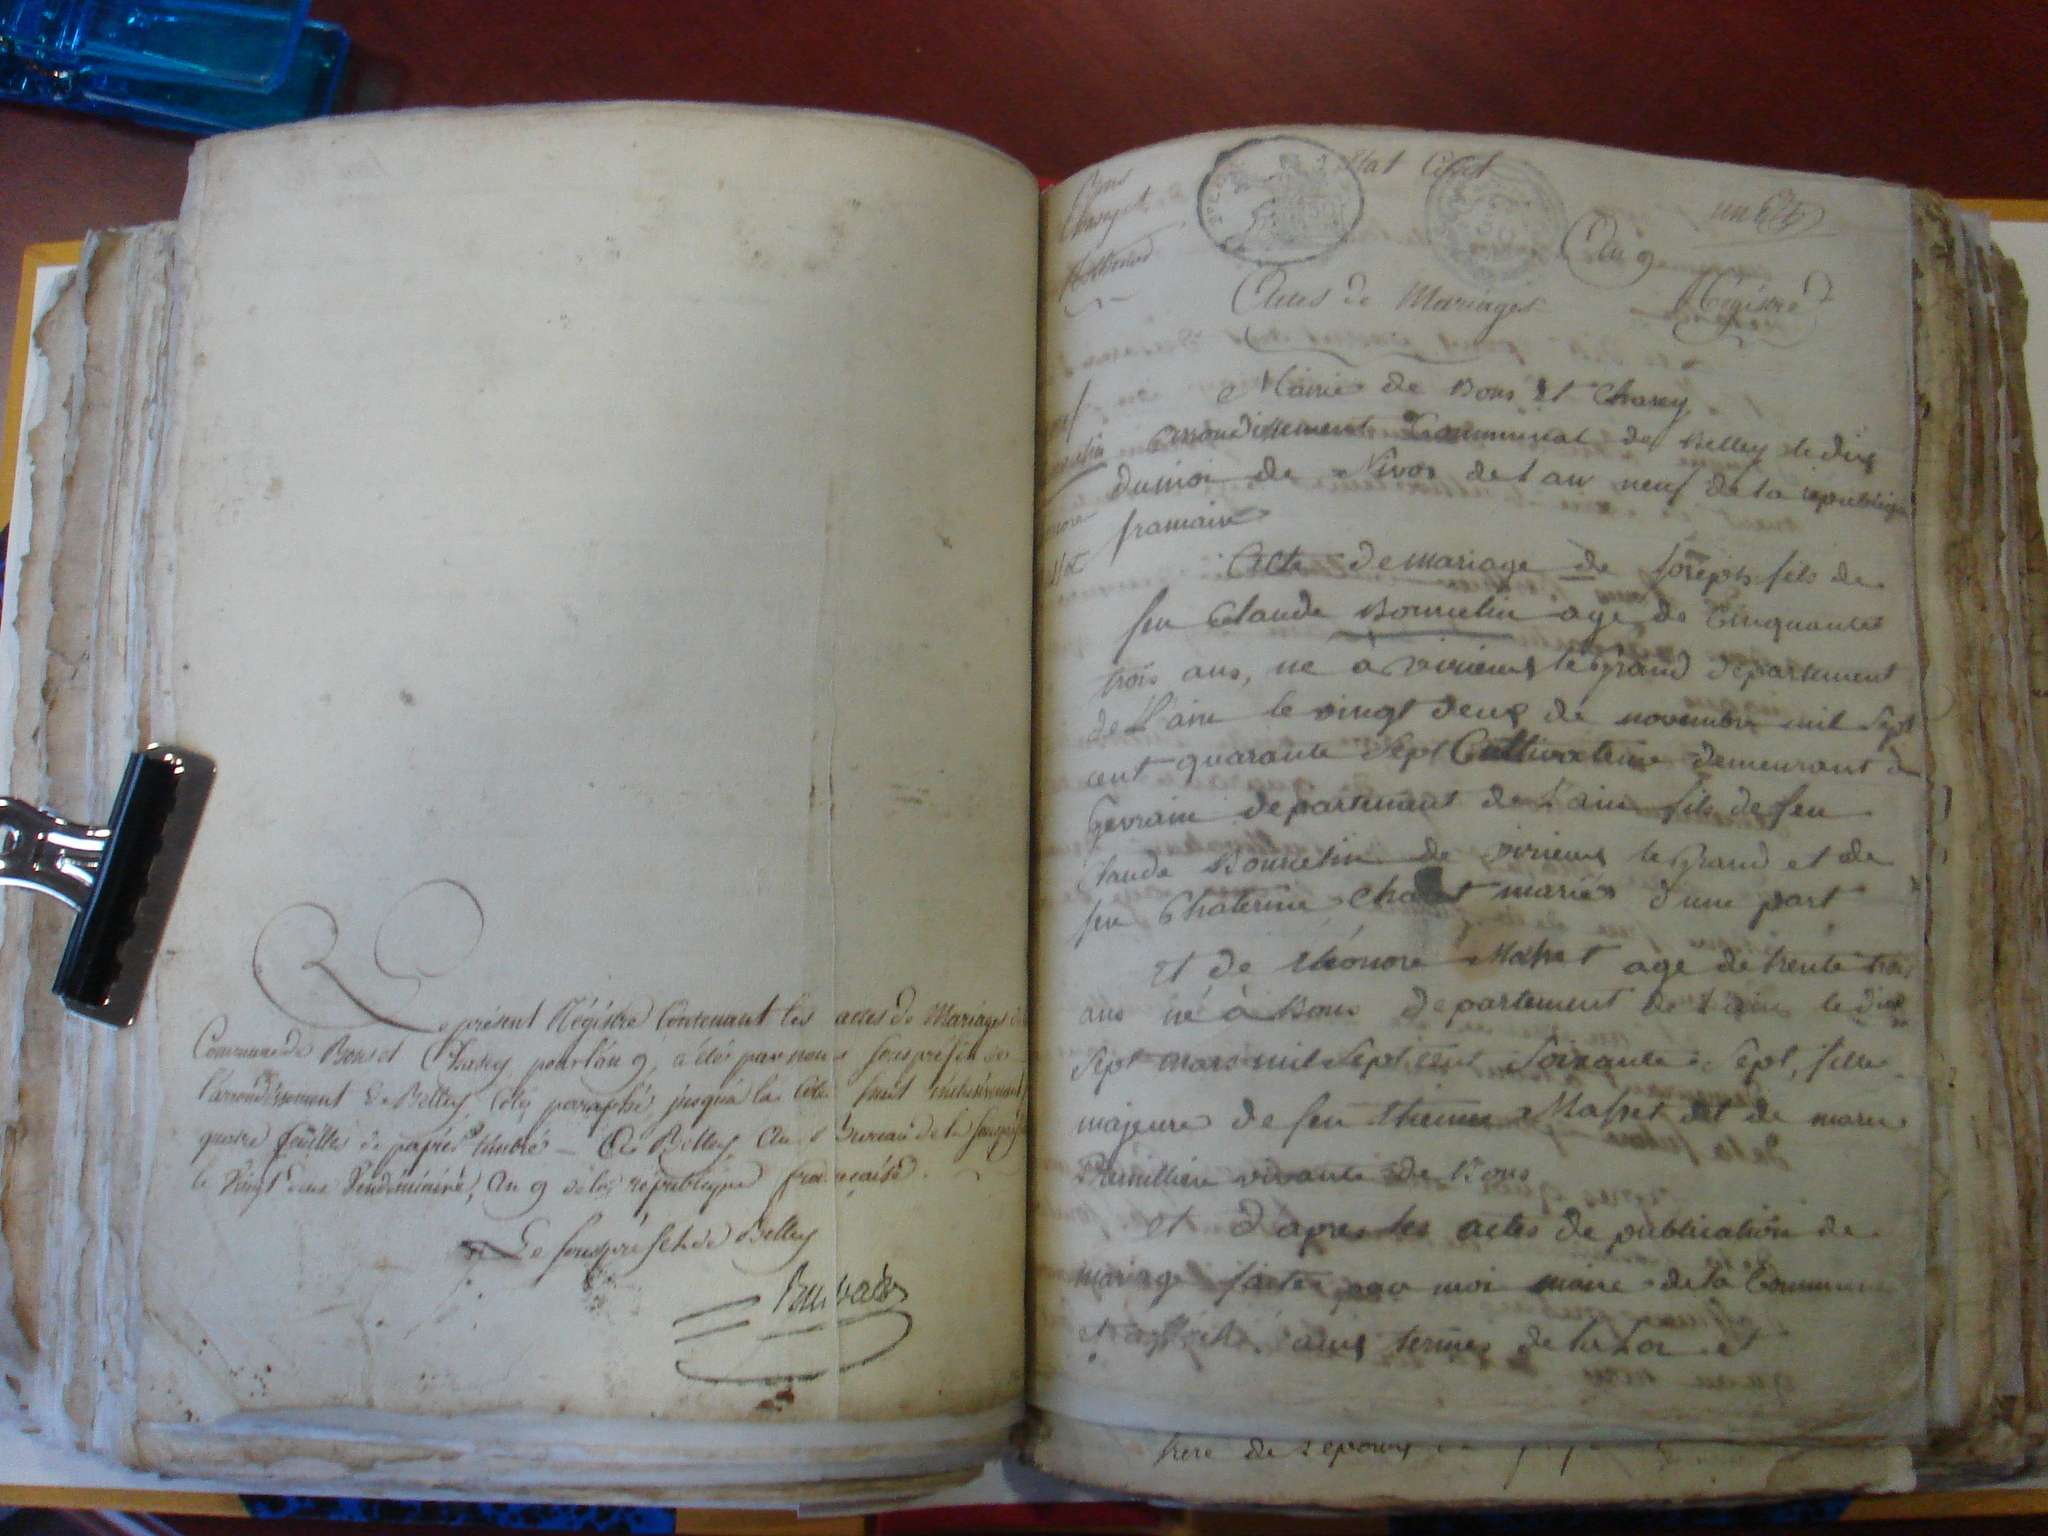 Le présent Régistre Contenant les actes de Mariages
Commune de Bons et Chasey pour l'an 9, a été par nous souspréfet de
l'arrondissement de Belley, Coté paraphé, jusqu'à la Cote huit inclusivement
quatre feuilles de papier timbré — A Belley, Au Bureau de la
le Vingt deux Vendémiaire, An 9 de la république française.
Le souspréfet de Belley
Etat Civil
Bons
An 9
Actes de Mariages
Régistre
Mairie de Bons et Chasey
Arrondissement Communal de Belley le dix
du moi de Nivos de l'an neuf de la republique
francaire
Acte de mariage de Joseph fils de
feu Claude Bonnelin age de Cinquante
trois ans, ne à virieux le grand departement
de L'ain le vingt deux de novembre mil sept
cent quarante sept Cultivateur demeurant à
departement de L'ain fils de feu
Claude Bonnelin de virieux le Grand et de
feu Chaterine mariés d'une part
et de Eléonore Masset age de trente trois
ans né à Bons departement de L'ain le dix
sept mars mil sept cent soixante sept, fille
majeure de feu Masset et de marie
vivante de Bons
et d'apres les actes de publication de
mariage faite par moi maire de la Commune
et aux termes de la Loi et
frere de L'epoux